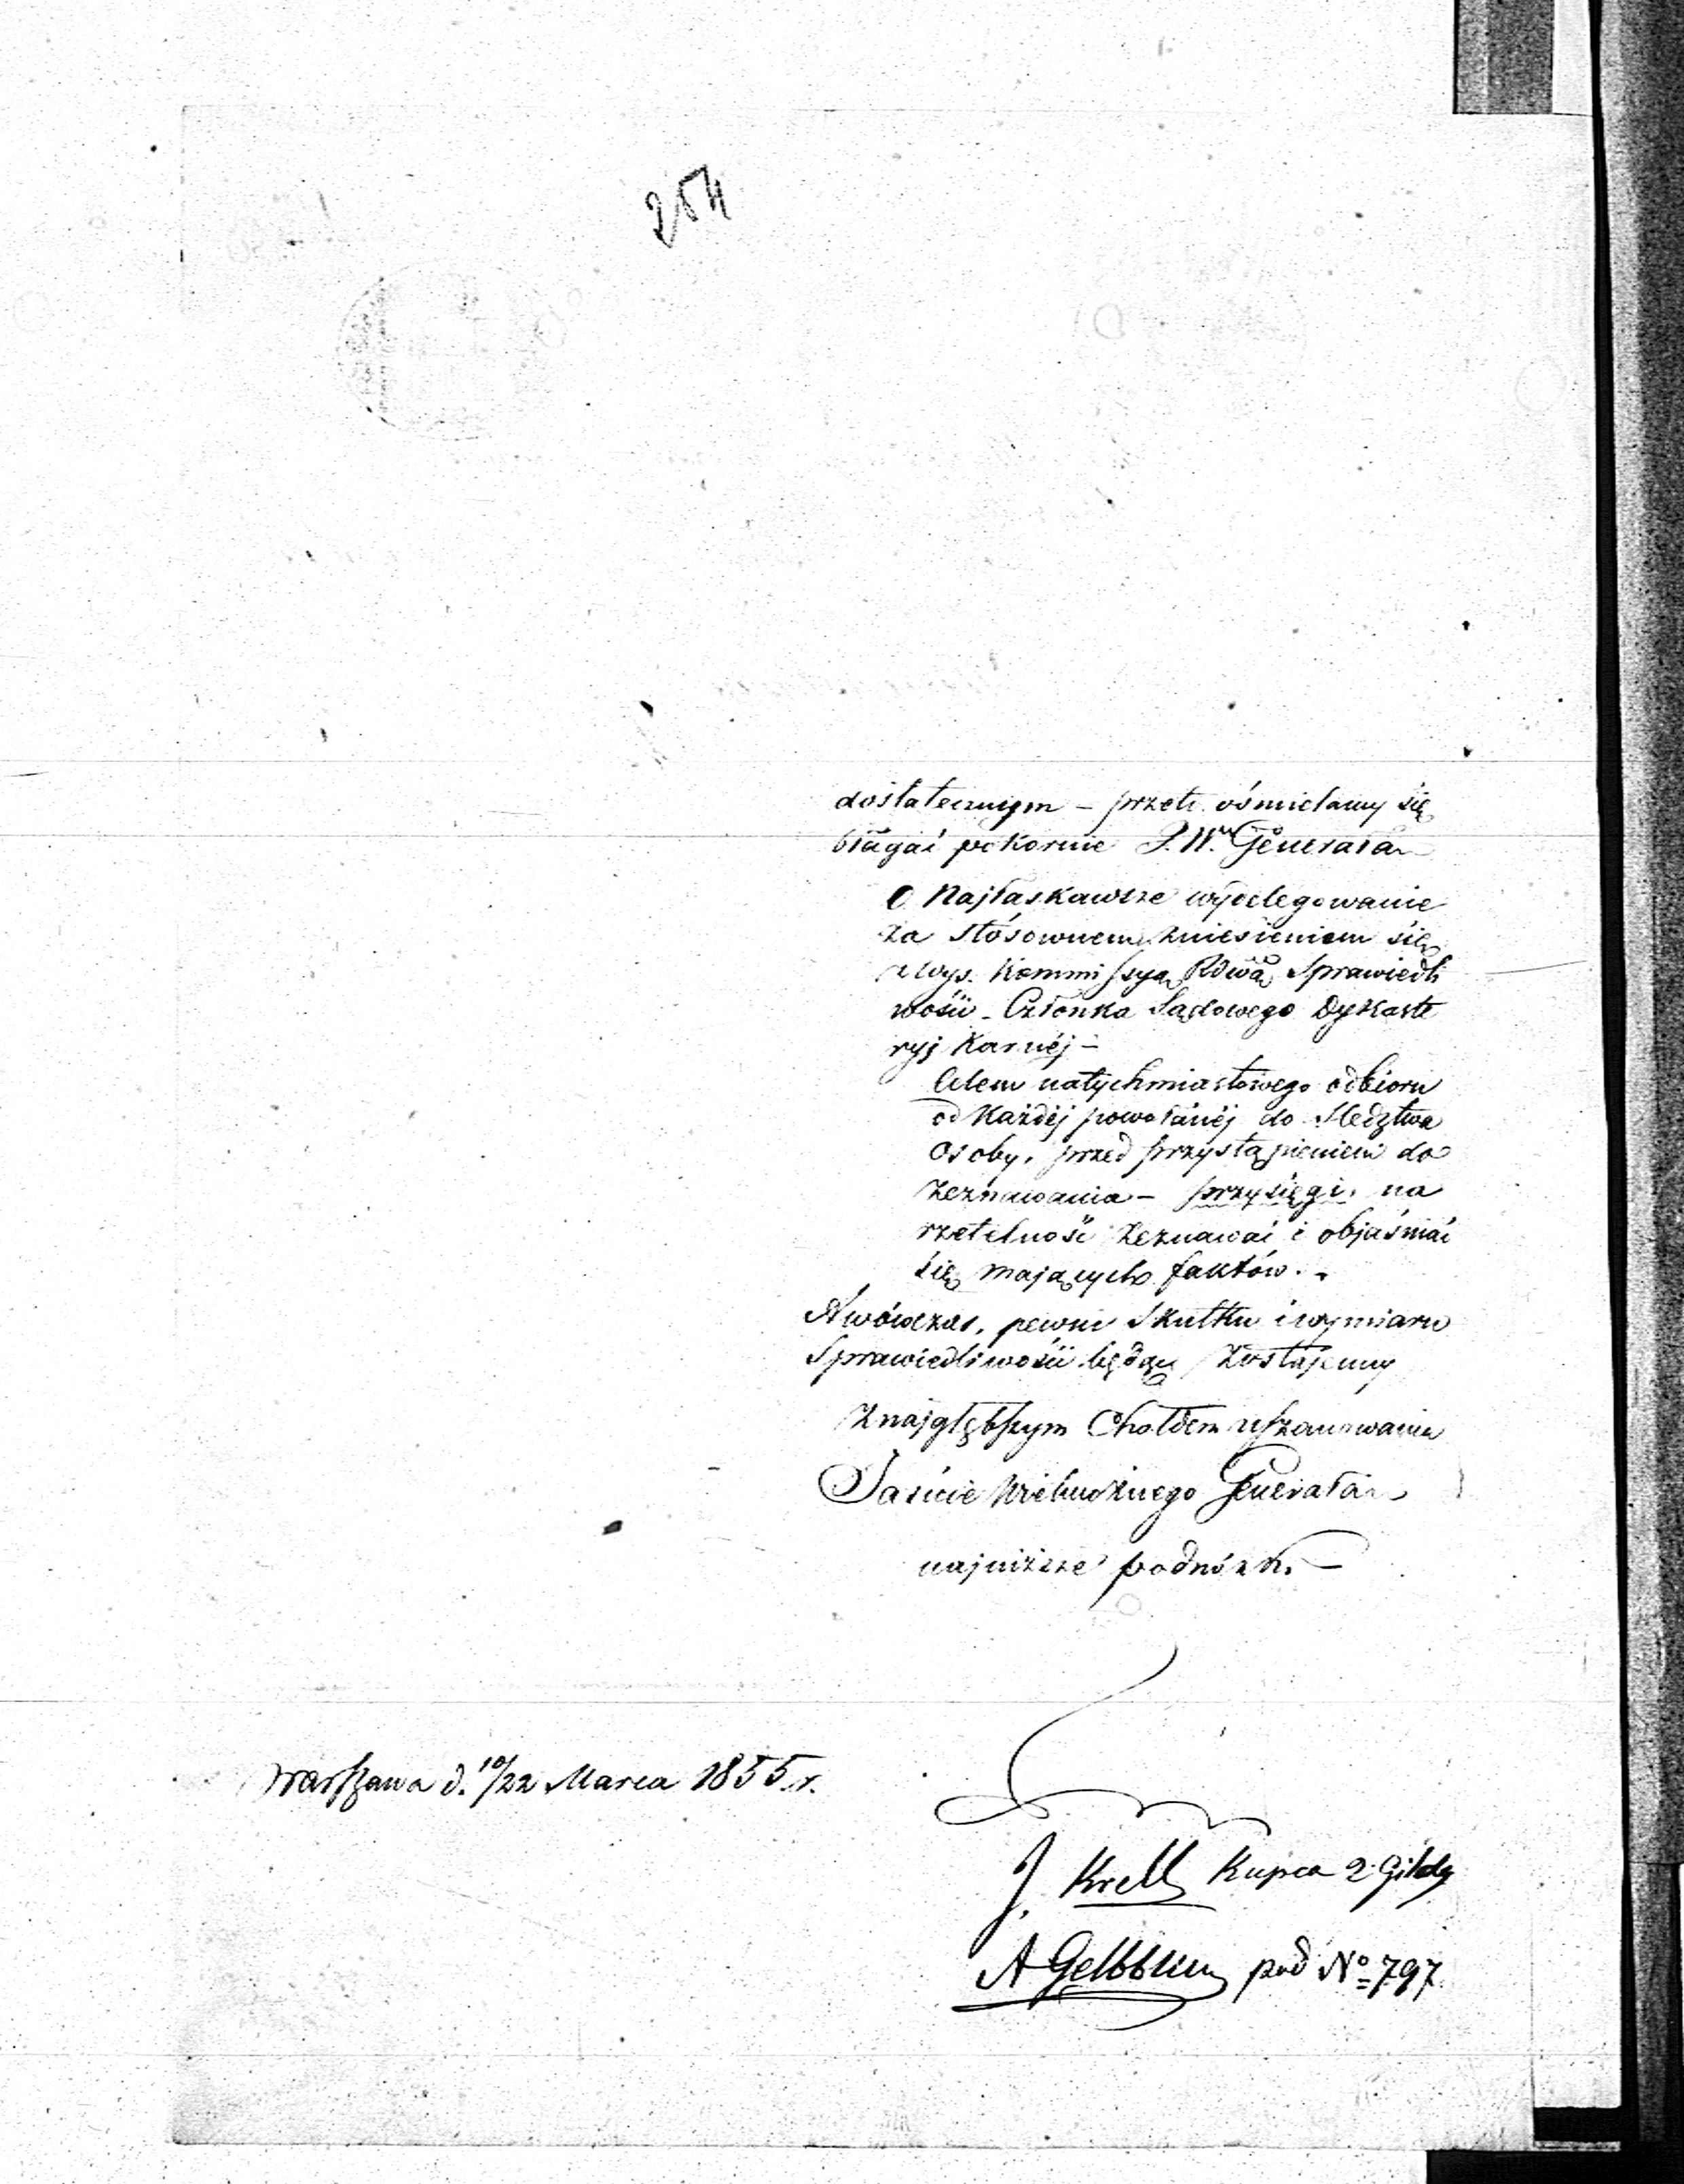 254
dostatecznym – przeto ośmielamy się
błagać pokornie J. W. Generała
O Najłaskawsze wydelegowanie
za stósownem zniesieniem się
z Wys. Kommissyą Rdwą Sprawiedli
wości – Członka Sądowego Dykaste
ryj Karnéj –
Celem natychmiastowego odbioru
od Każdéj powołanéj do Sledztwa
Osoby, przed przystąpieniem do
Zeznawania – przysięgi, na
rzetelność Zeznawać i objaśniać
się mających faktów. –
A wówczas, pewni Skutku i wymiaru
Sprawiedliwości będąc, Zostajemy
Z najgłębszym Chołdem uszanowania
Jaśnie Wielmożnego Generała
najniższe podnóżki –
Warszawa d. 10/22 Marca 1855 r.
J. Krell Kupca 2 Gildy
A Gelbblum pod No 797